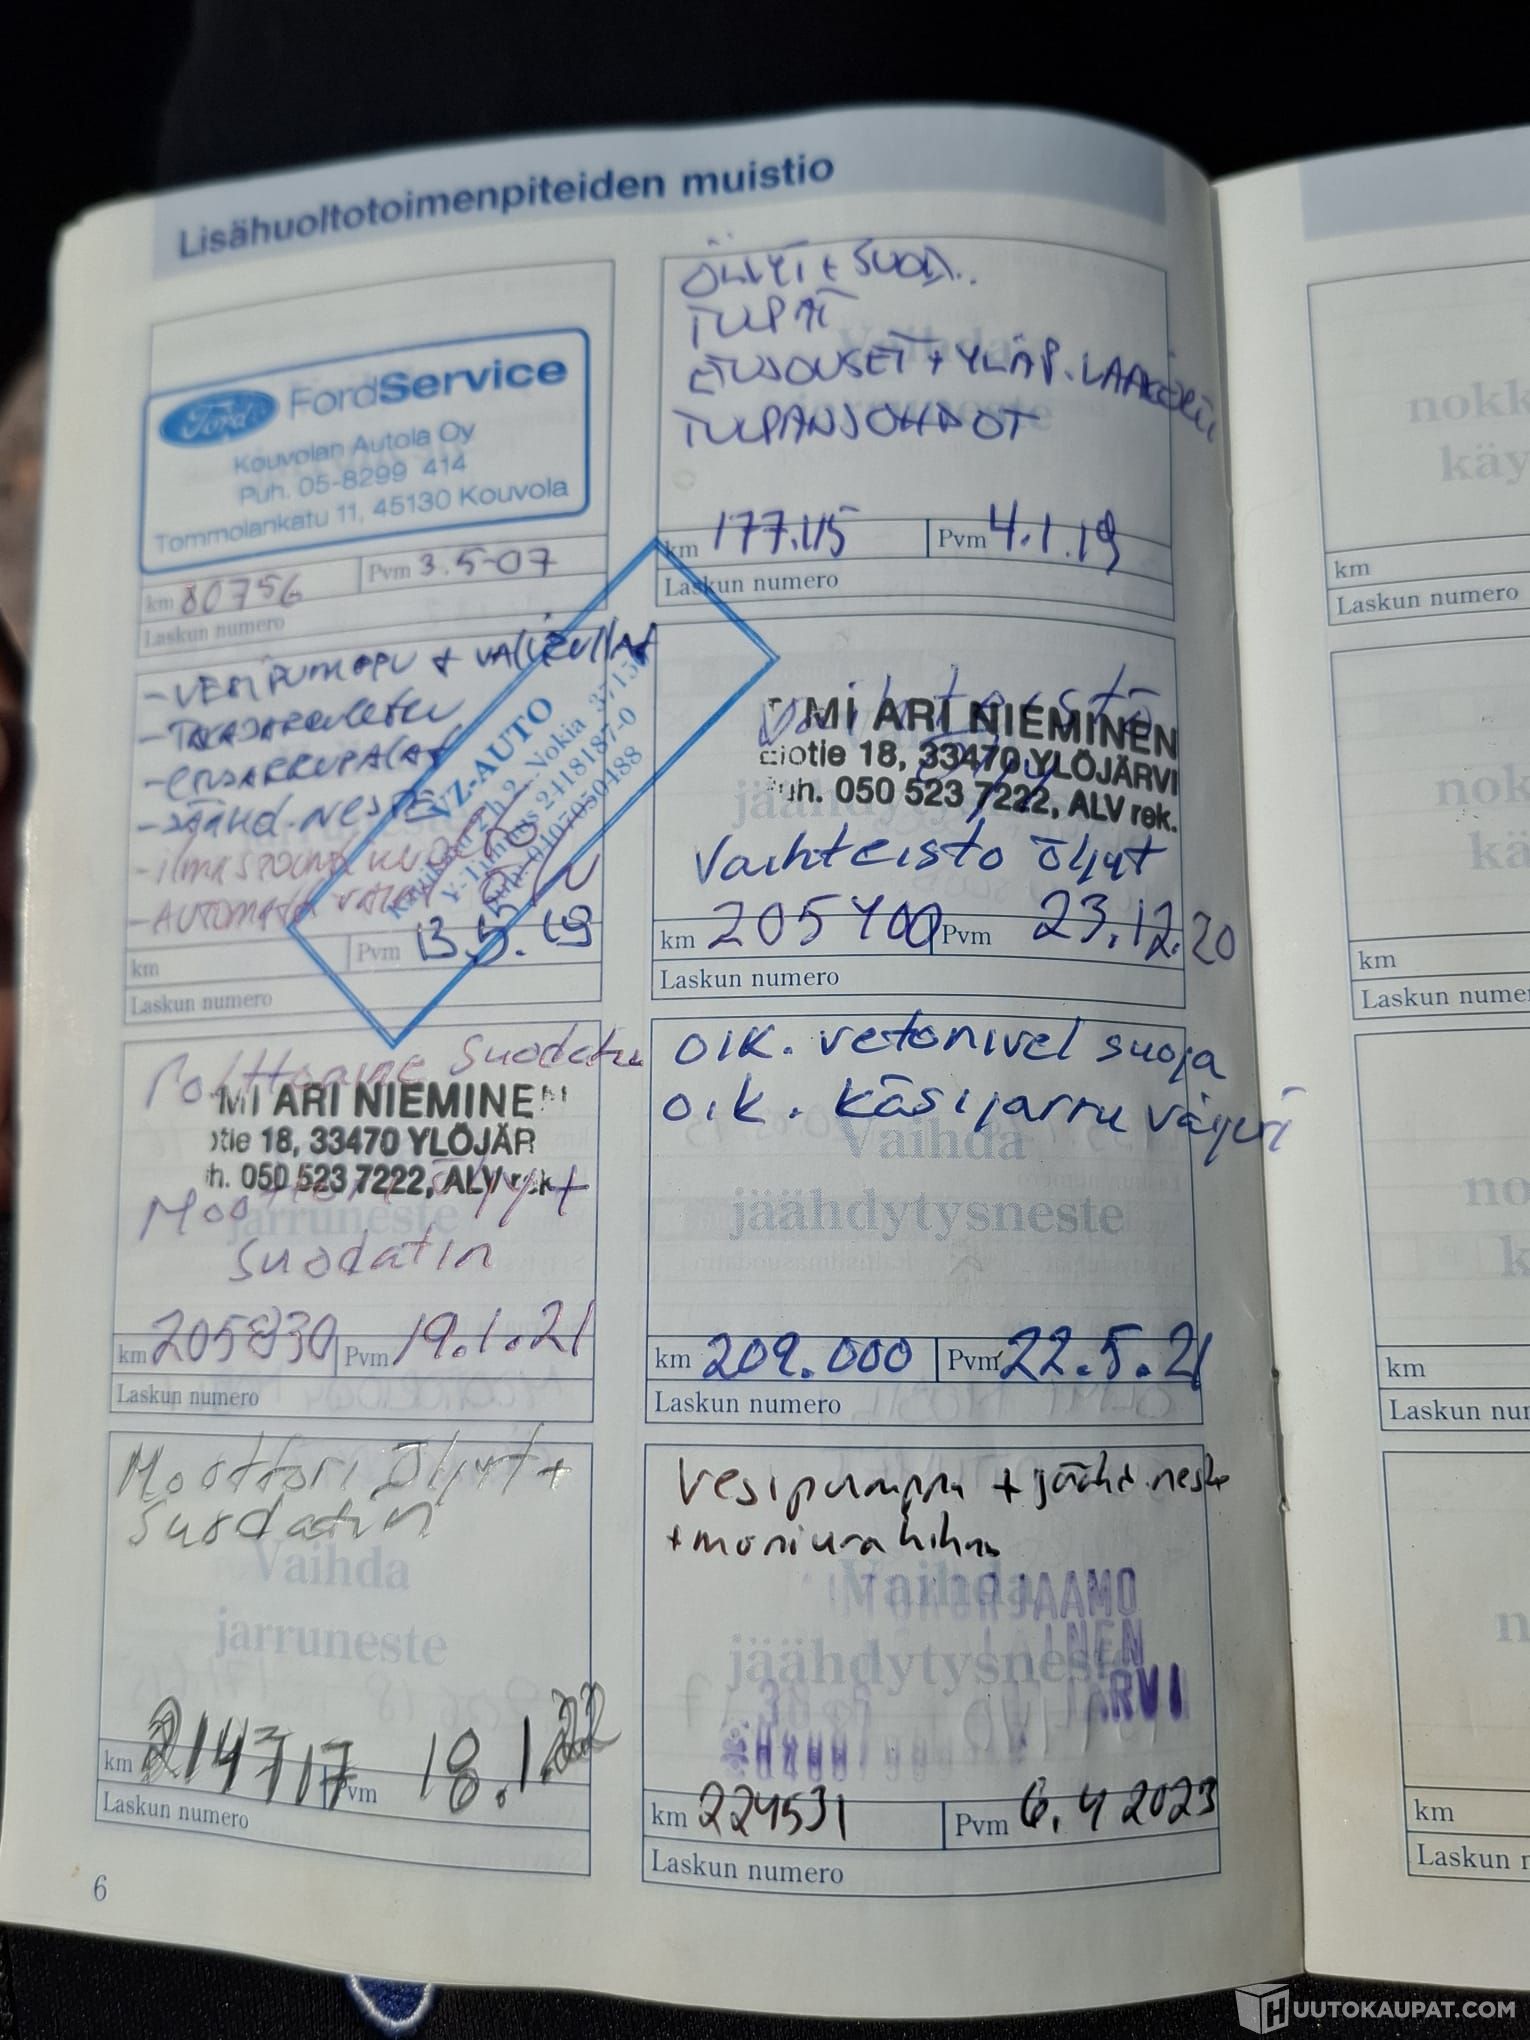 Lisähuoltotoimenpiteiden muistio
Ford FordService
Kouvolan Autola Oy
Puh. 05-8299 414
Tommolankatu 11, 45130 Kouvola
km 80756 Pvm 3.5-07
Laskun numero
ÖLJYT + SUOD.
TULPAT
ETUJOUSET + YLÄP. LAAKERIT
TULPANJOHDOT
km 177.115 Pvm 4.1.19
Laskun numero
- VESIPUMPPU +
-
- ETUJARRUPALAT
- JÄÄHD. NESTE
-
- AUTOMAATTI
VZ-AUTO
2, Nokia
Y-Tunnus 2418187-0
Puh. 0107050488
km Pvm 13.5.19
Laskun numero
MI ARI NIEMINEN
otie 18, 33470 YLÖJÄRVI
uh. 050 523 7222, ALV rek.
jäähdytysneste
Vaihteisto öljyt
km 205400 Pvm 23.12.20
Laskun numero
Polttoaine Suodatin
MI ARI NIEMINEN
otie 18, 33470 YLÖJÄR
h. 050 523 7222, ALV rek.
Moottori öljyt
jarruneste
suodatin
km 205830 Pvm 19.1.21
Laskun numero
oik. vetonivel suoja
oik. käsijarru vaijeri
Vaihda
jäähdytysneste
km 209.000 Pvm 22.5.21
Laskun numero
Moottori Öljyt +
suodatin
Vaihda
jarruneste
km 214717 Pvm 18.1.22
Laskun numero
Vesipumppu + jäähd. neste
+ moniurahihna
Vaihda
JAAMO
jäähdytysneste
INEN
JÄRVI
km 224531 Pvm 6.4 2023
Laskun numero
6
nokk
käy
km
Laskun numero
nok
kä
km
Laskun nume
no
k
km
Laskun nu
n
km
Laskun r
HUUTOKAUPAT.COM